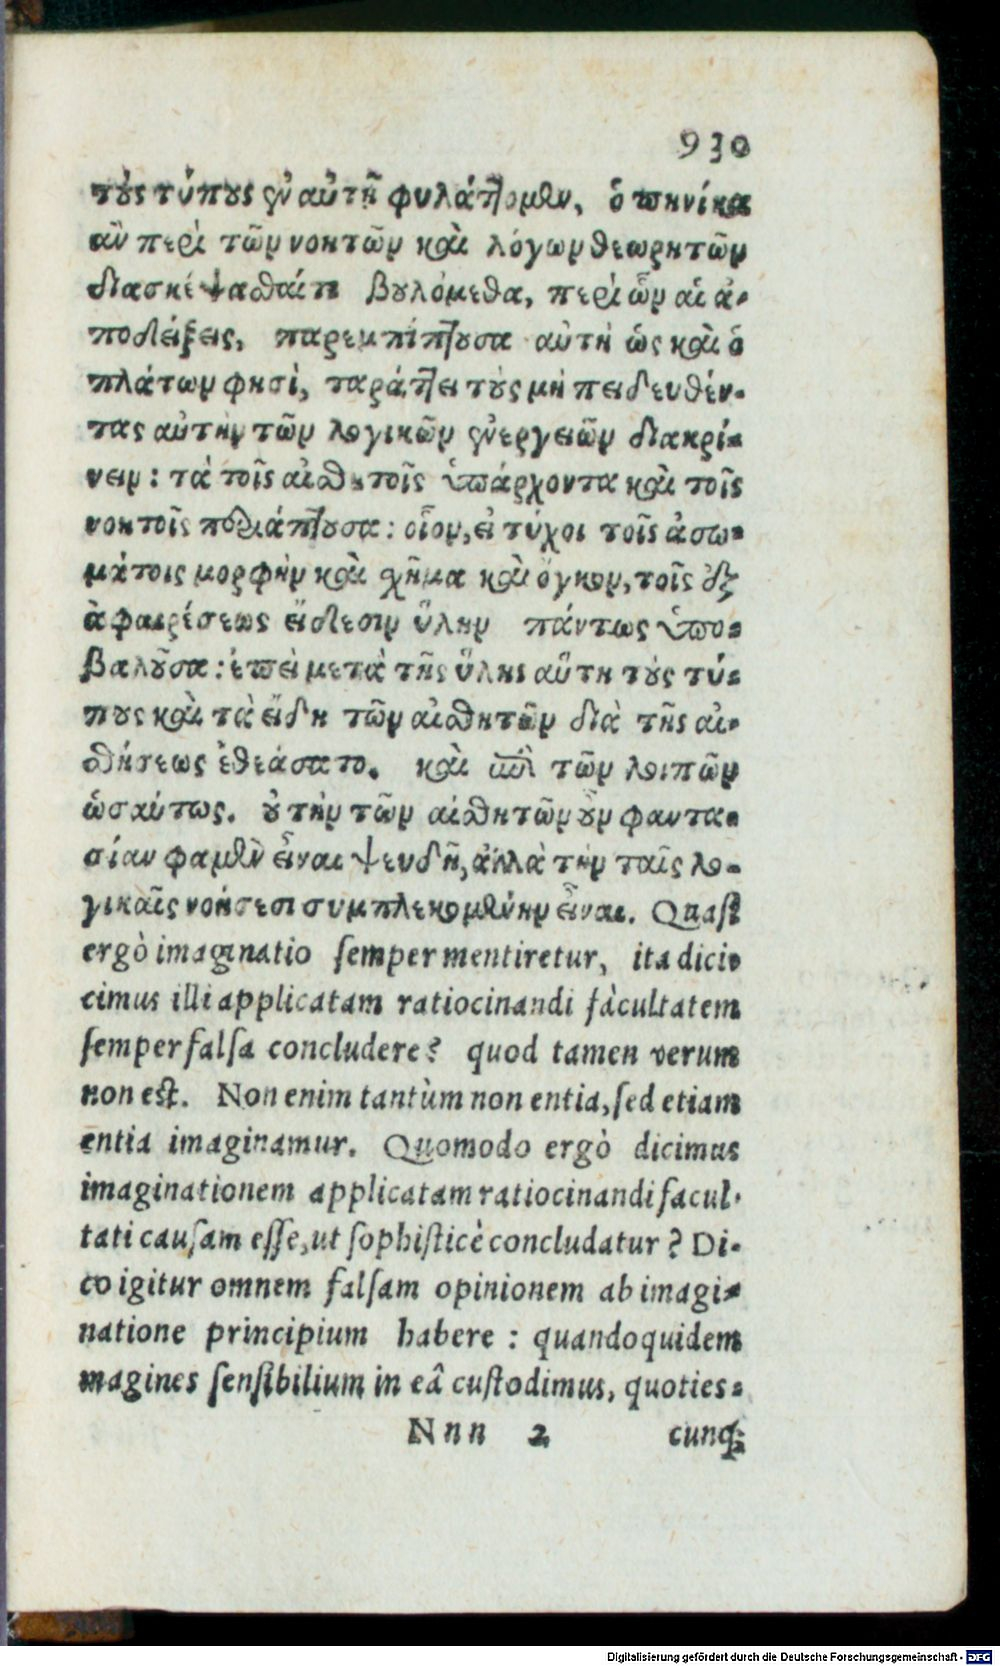 930
τοὺς τύπους ἐν αὐτῇ φυλάττομεν, ὁπηνίκα
ἂν περὶ τῶν νοητῶν καὶ λόγων θεωρητῶν
διασκέψασθαί τι βουλόμεθα, περὶ ὧν αἱ ἀ-
ποδείξεις, παρεμπίπτουσα αὐτὴ ὡς καὶ ὁ
πλάτων φησὶ, ταράττει τοὺς μὴ πειδευθέν-
τας αὐτὴν τῶν λογικῶν ἐνεργειῶν διακρί-
νειν: τὰ τοῖς αἰσθητοῖς ὑπάρχοντα καὶ τοῖς
νοητοῖς περιάπτουσα: οἷον, εἰ τύχοι τοῖς ἀσω-
μάτοις μορφὴν καὶ σχῆμα καὶ ὄγκον, τοῖς ἐξ
ἀφαιρέσεως εἴδεσιν ὕλην πάντως ὑπο-
βαλοῦσα: ἐπεὶ μετὰ τῆς ὕλης αὕτη τοὺς τύ-
πους καὶ τὰ εἴδη τῶν αἰσθητῶν διὰ τῆς αἰ-
σθήσεως ἐθεάσατο. καὶ ἐπὶ τῶν λοιπῶν
ὡσαύτως. οὐ τὴν τῶν αἰσθητῶν οὖν φαντα-
σίαν φαμὲν εἶναι ψευδῆ, ἀλλὰ τὴν ταῖς λο-
γικαῖς νοήσεσι συμπλεκομένην εἶναι. Quasi
ergò imaginatio semper mentiretur, ita dici-
cimus illi applicatam ratiocinandi fàcultatem
semper falsa concludere? quod tamen verum
non est. Non enim tantùm non entia, sed etiam
entia imaginamur. Quomodo ergò dicimus
imaginationem applicatam ratiocinandi facul-
tati causam esse, ut sophisticè concludatur? Di-
co igitur omnem falsam opinionem ab imagi-
natione principium habere: quandoquidem
magines sensibilium in eâ custodimus, quoties-
Nnn 2 cunq;
Digitalisierung gefördert durch die Deutsche Forschungsgemeinschaft - DFG